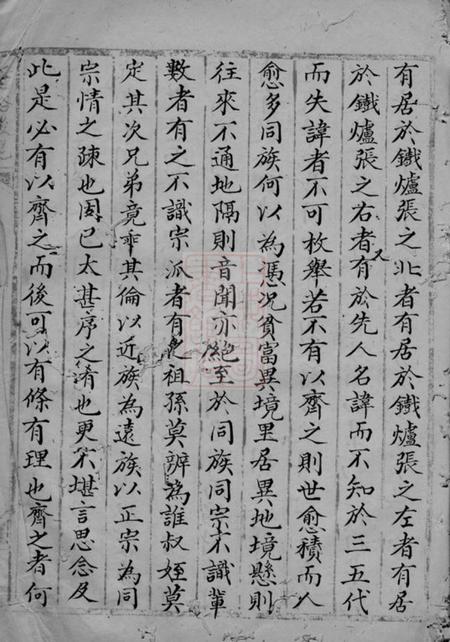 有居於鐵爐張之北者有居於鐵爐張之左者有居
於鐵爐張之右者又有於先人名諱而不知於三五代
而失諱者不可枚舉若不有以齊之則世愈積而人
愈多同族何以為憑况貧富異境里居異地境懸則
往來不通地隔則音聞亦絶至於同族同宗不識輩
數者有之不識宗派者有之祖孫莫辨為誰叔姪莫
定其次兄弟竟乖其倫以近族為遠族以正宗為同
宗情之疎也固已太甚序之淆也更不堪言思念及
此是必有以齊之而後可以有條有理也齊之者何